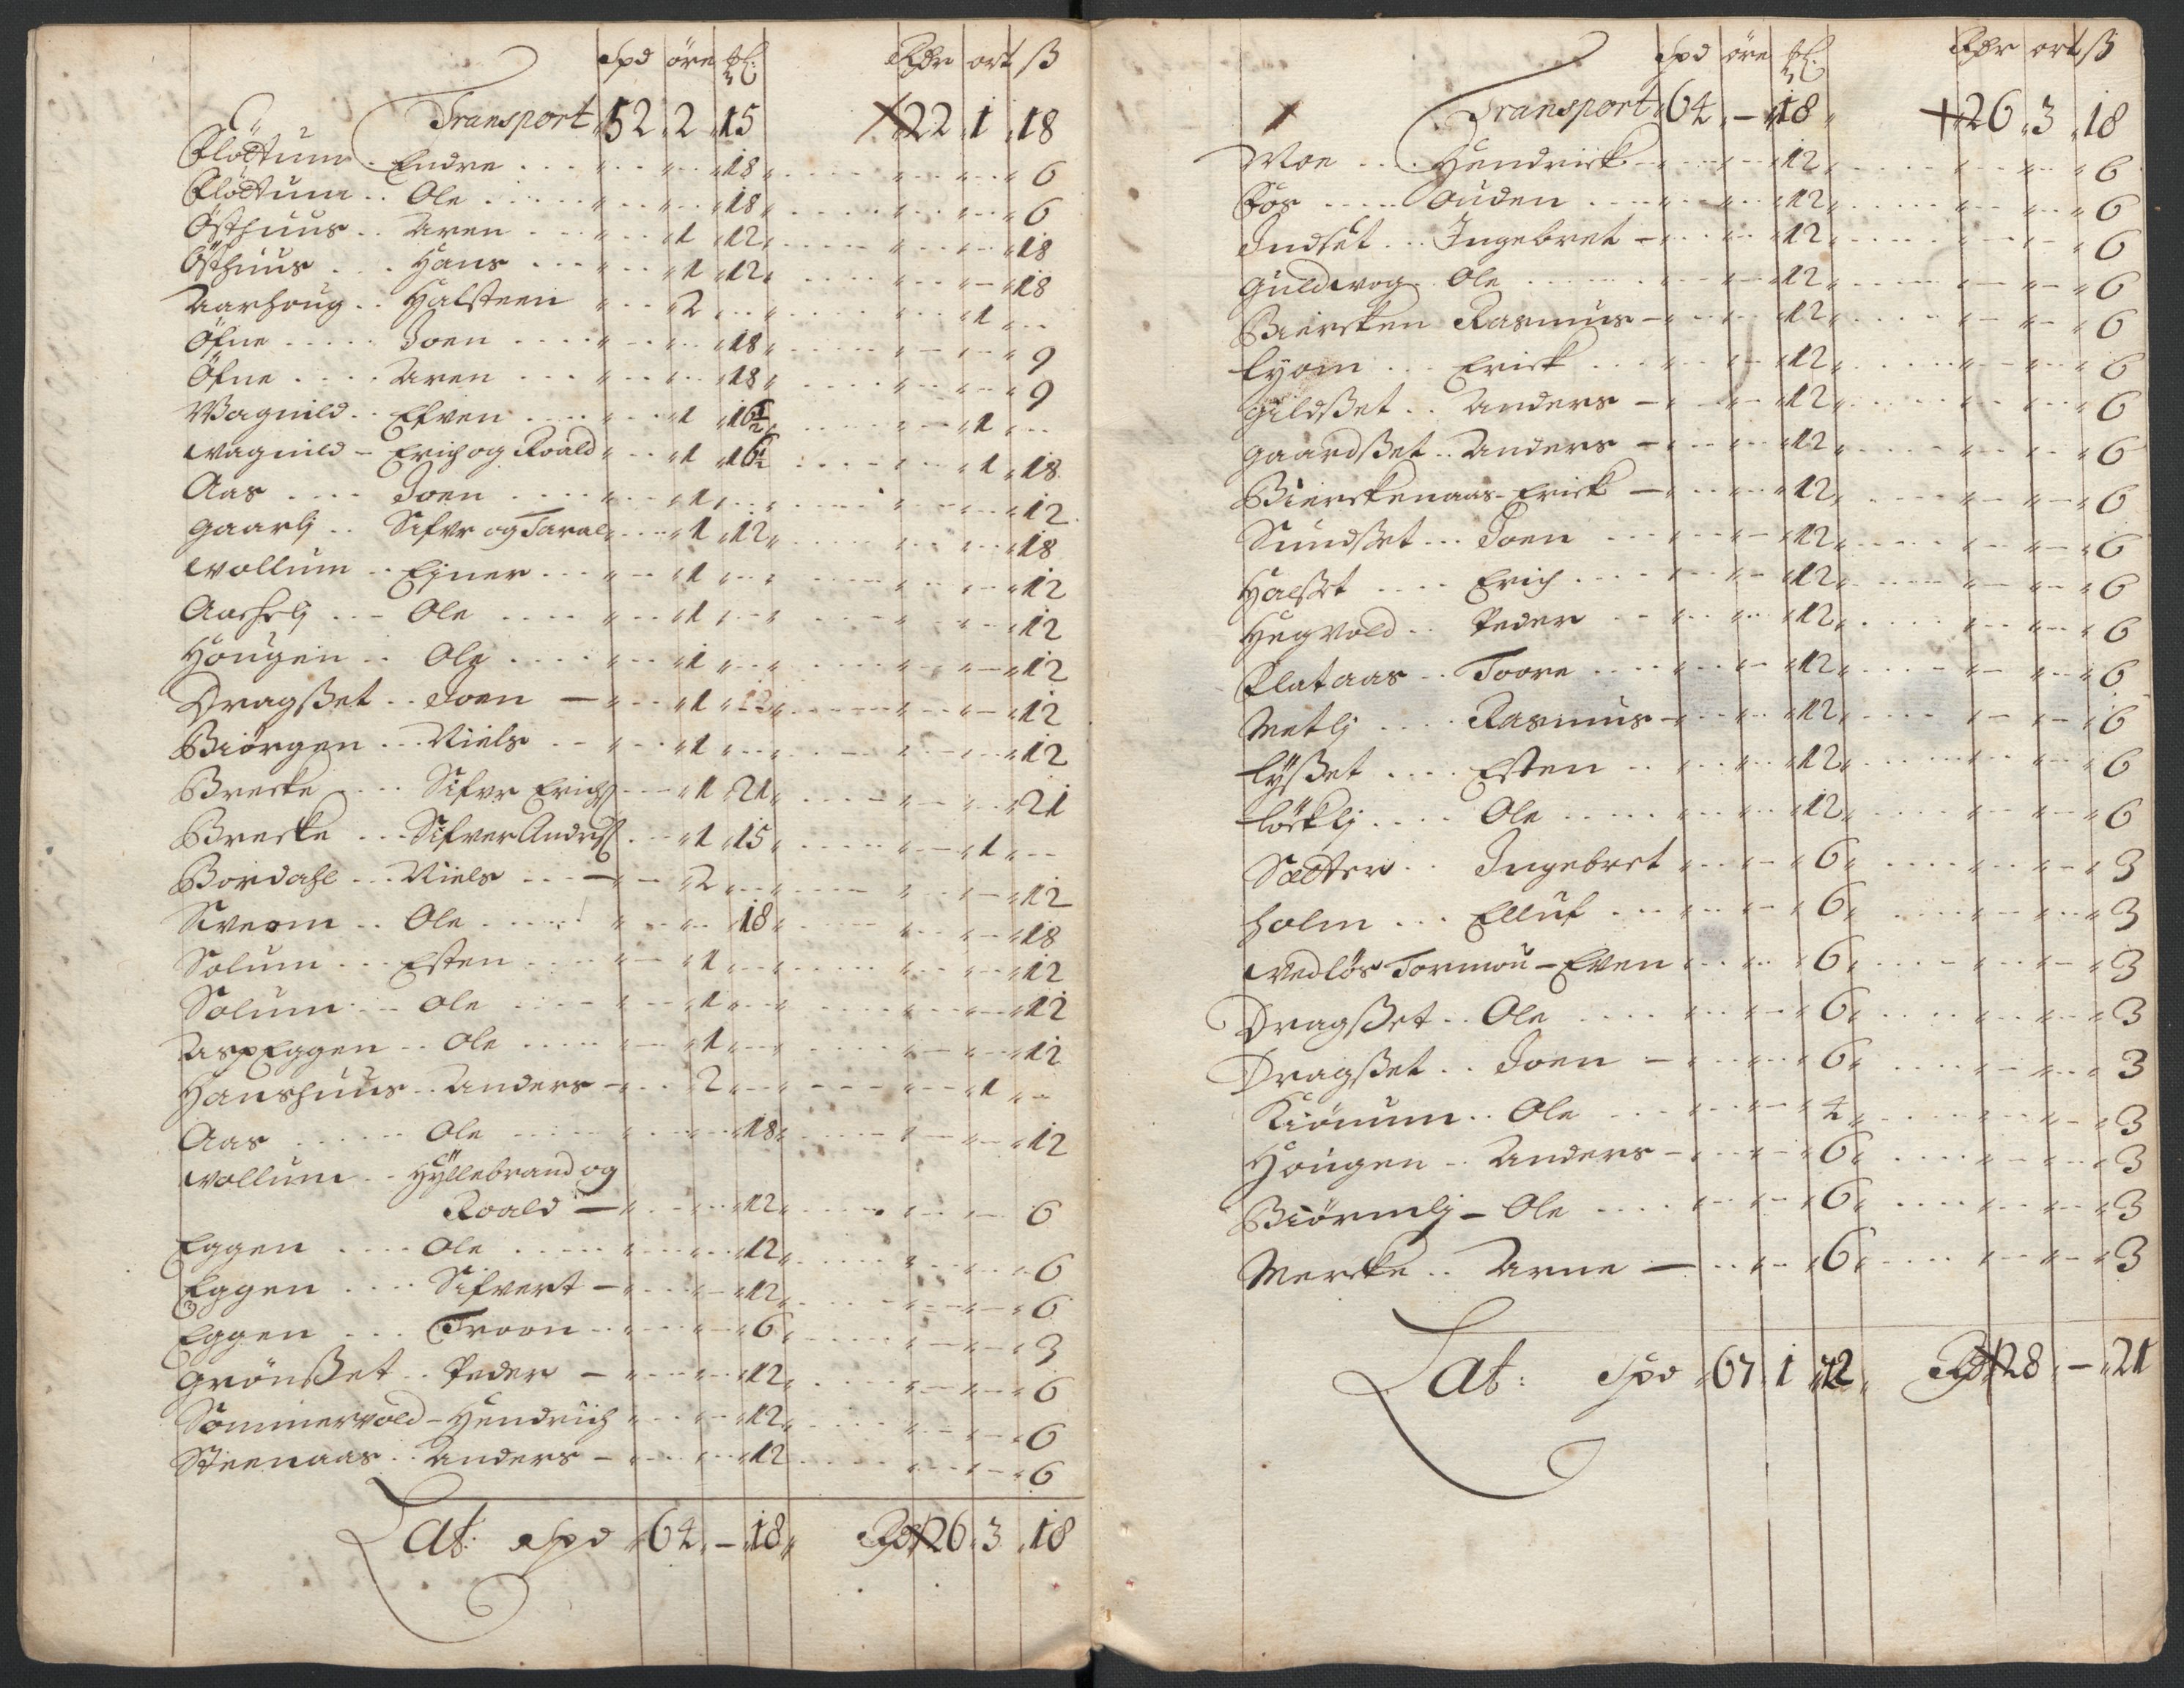 Spd öre ꝉ Rdr ort ß
Transport 52 2 15 22 1 18
Flöttum Endre 18 6
Flöttum Ole 18 6
Östhuus Aren 1 12 18
Östhuus Hans 1 12 18
Aarhoug Halsteen 2 1
Öfne Joen 18 9
Öfne Aren 18 9
Wagnild Efven 1 16½ 1
Wagnild Erich og Roald 1 16½ 1 18
Aas Joen 1 12
Gaarlj Sifvr og Taral 1 12 18
Wollum Ejner 1 12
Aashelj Ole 1 12
Hougen Ole 1 12
Dragßet Joen 1 12 12
Biörgen Niels 1 12
Brecke Sifvr Erichs 1 21 21
Brecke Sifver Anders 1 15 1
Bordahl Niels 2 12
Sveom Ole 18 18
Solum Esten 1 12
Solum Ole 1 12
AspEggen Ole 1 12
Hanshuus Anders 2 1
Aas Ole 18 12
Wollum Hÿllebrand og
Roald 12 6
Eggen Ole 12 6
Eggen Sifvert 12 6
Eggen Troon 6 3
Grönßet Peder 12 6
Sommervold Hendrich 12 6
Steenaas Anders 12 6
Lat: Spd 64 - 18 Rdr 26 3 18
Spd öre ꝉ Rdr ort ß
Transport 64 - 18 26 3 18
Moe Hendrick 12 6
Fos Ouden 12 6
Indset Ingebret 12 6
Guldwog Ole 12 6
Biercken Rasmus 12 6
Lyom Erick 12 6
Gildßet Anders 12 6
Gaardßet Anders 12 6
Bierckenaas Erick 12 6
Sundßet Joen 12 6
Halßet Erich 12 6
Hegvold Peder 12 6
Flataas Toore 12 6
Metlj Rasmus 12 6
Lÿßet Esten 12 6
Löcklj Ole 12 6
Sætter Ingebret 6 3
Holm Elluf 6 3
Wedlös Tormou Even 6 3
Dragßet Ole 6 3
Dragßet Joen 6 3
Kiönum Ole 4 3
Hougen Anders 6 3
Biörnlj Ole 6 3
Mercke Arne 6 3
Lat: Spd 67 1 12 Rdr 28 - 21